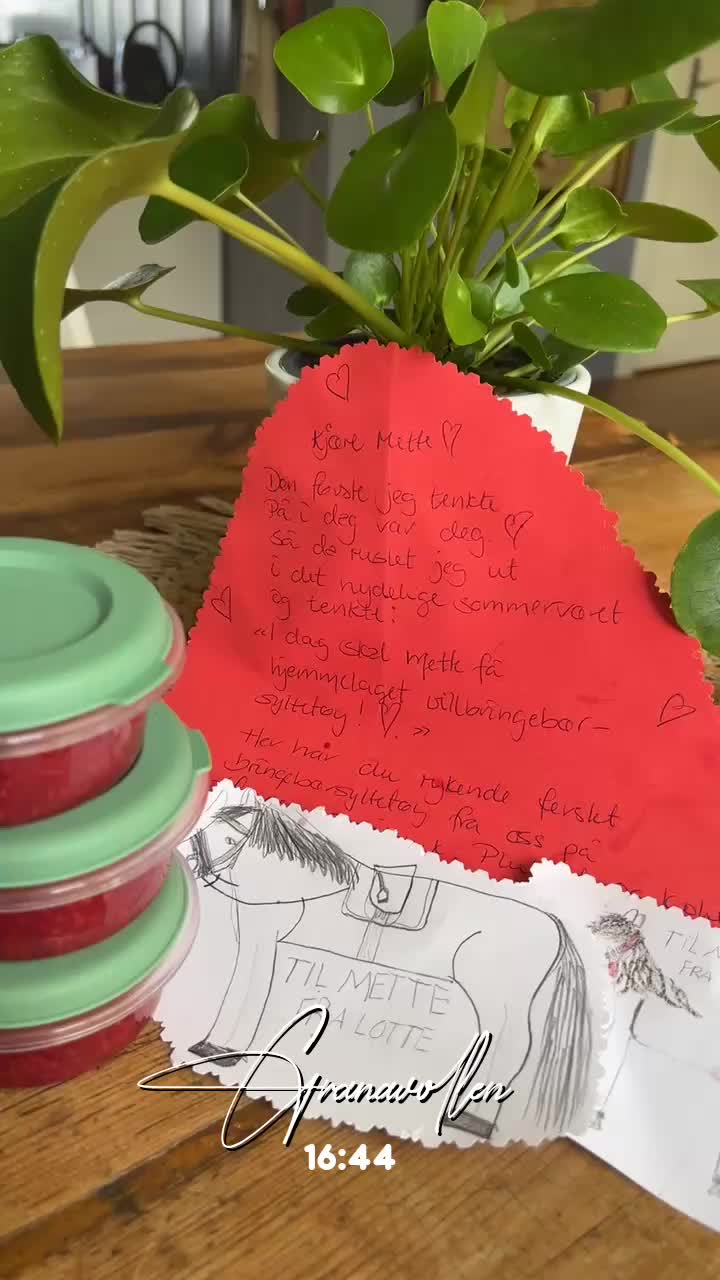 Kjære Mette ♡
Den første jeg tenkte
På i dag var deg. ♡
så da ruslet jeg ut
i det nydelige sommerværet
og tenkte:
«I dag skal Mette få
hjemmelaget villbringebær-
syltetøy! ♡. »
Her har du rykende ferskt
bringebærsyltetøy fra oss på
TIL METTE
FRA LOTTE
TIL
FRA
Granavollen
16:44